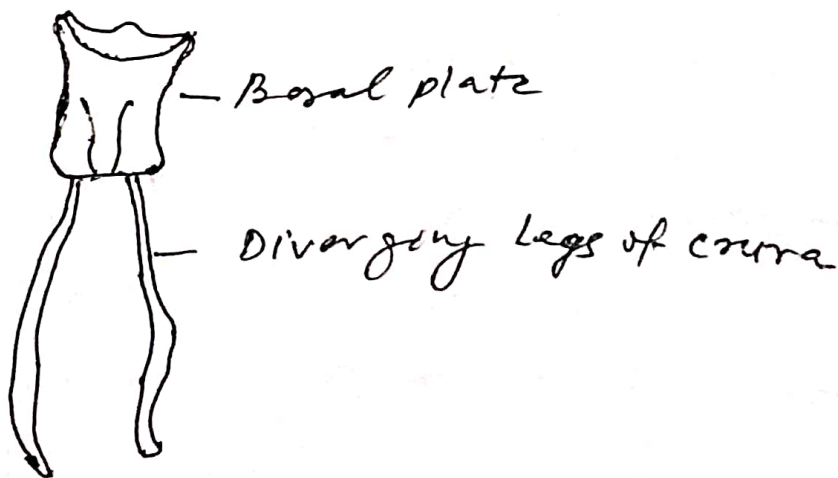 Basal plate
Diverging Legs of crura